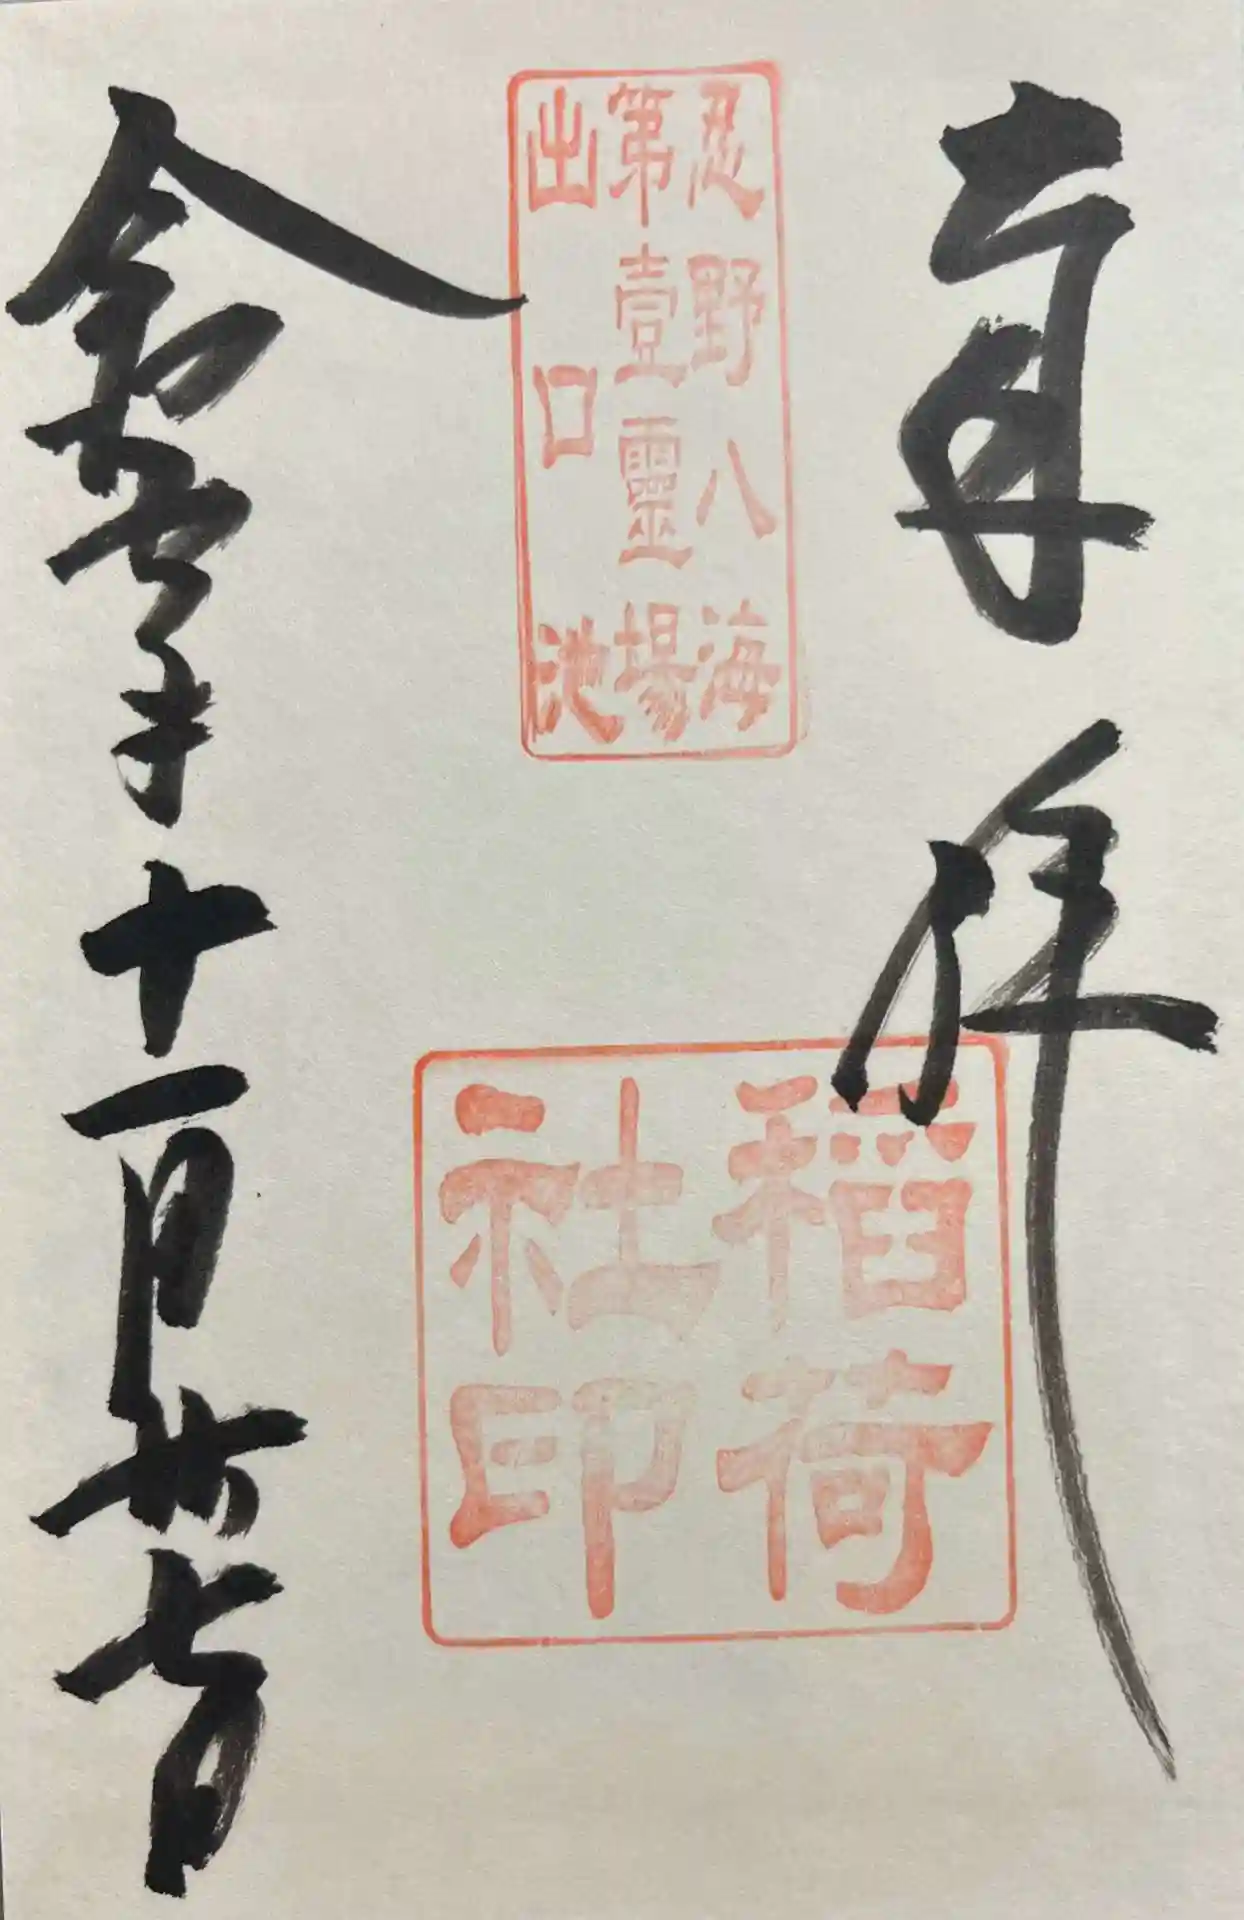 奉拝
忍野八海
第壹靈場
出口池
稻荷
社印
令和六年十一月廿七日